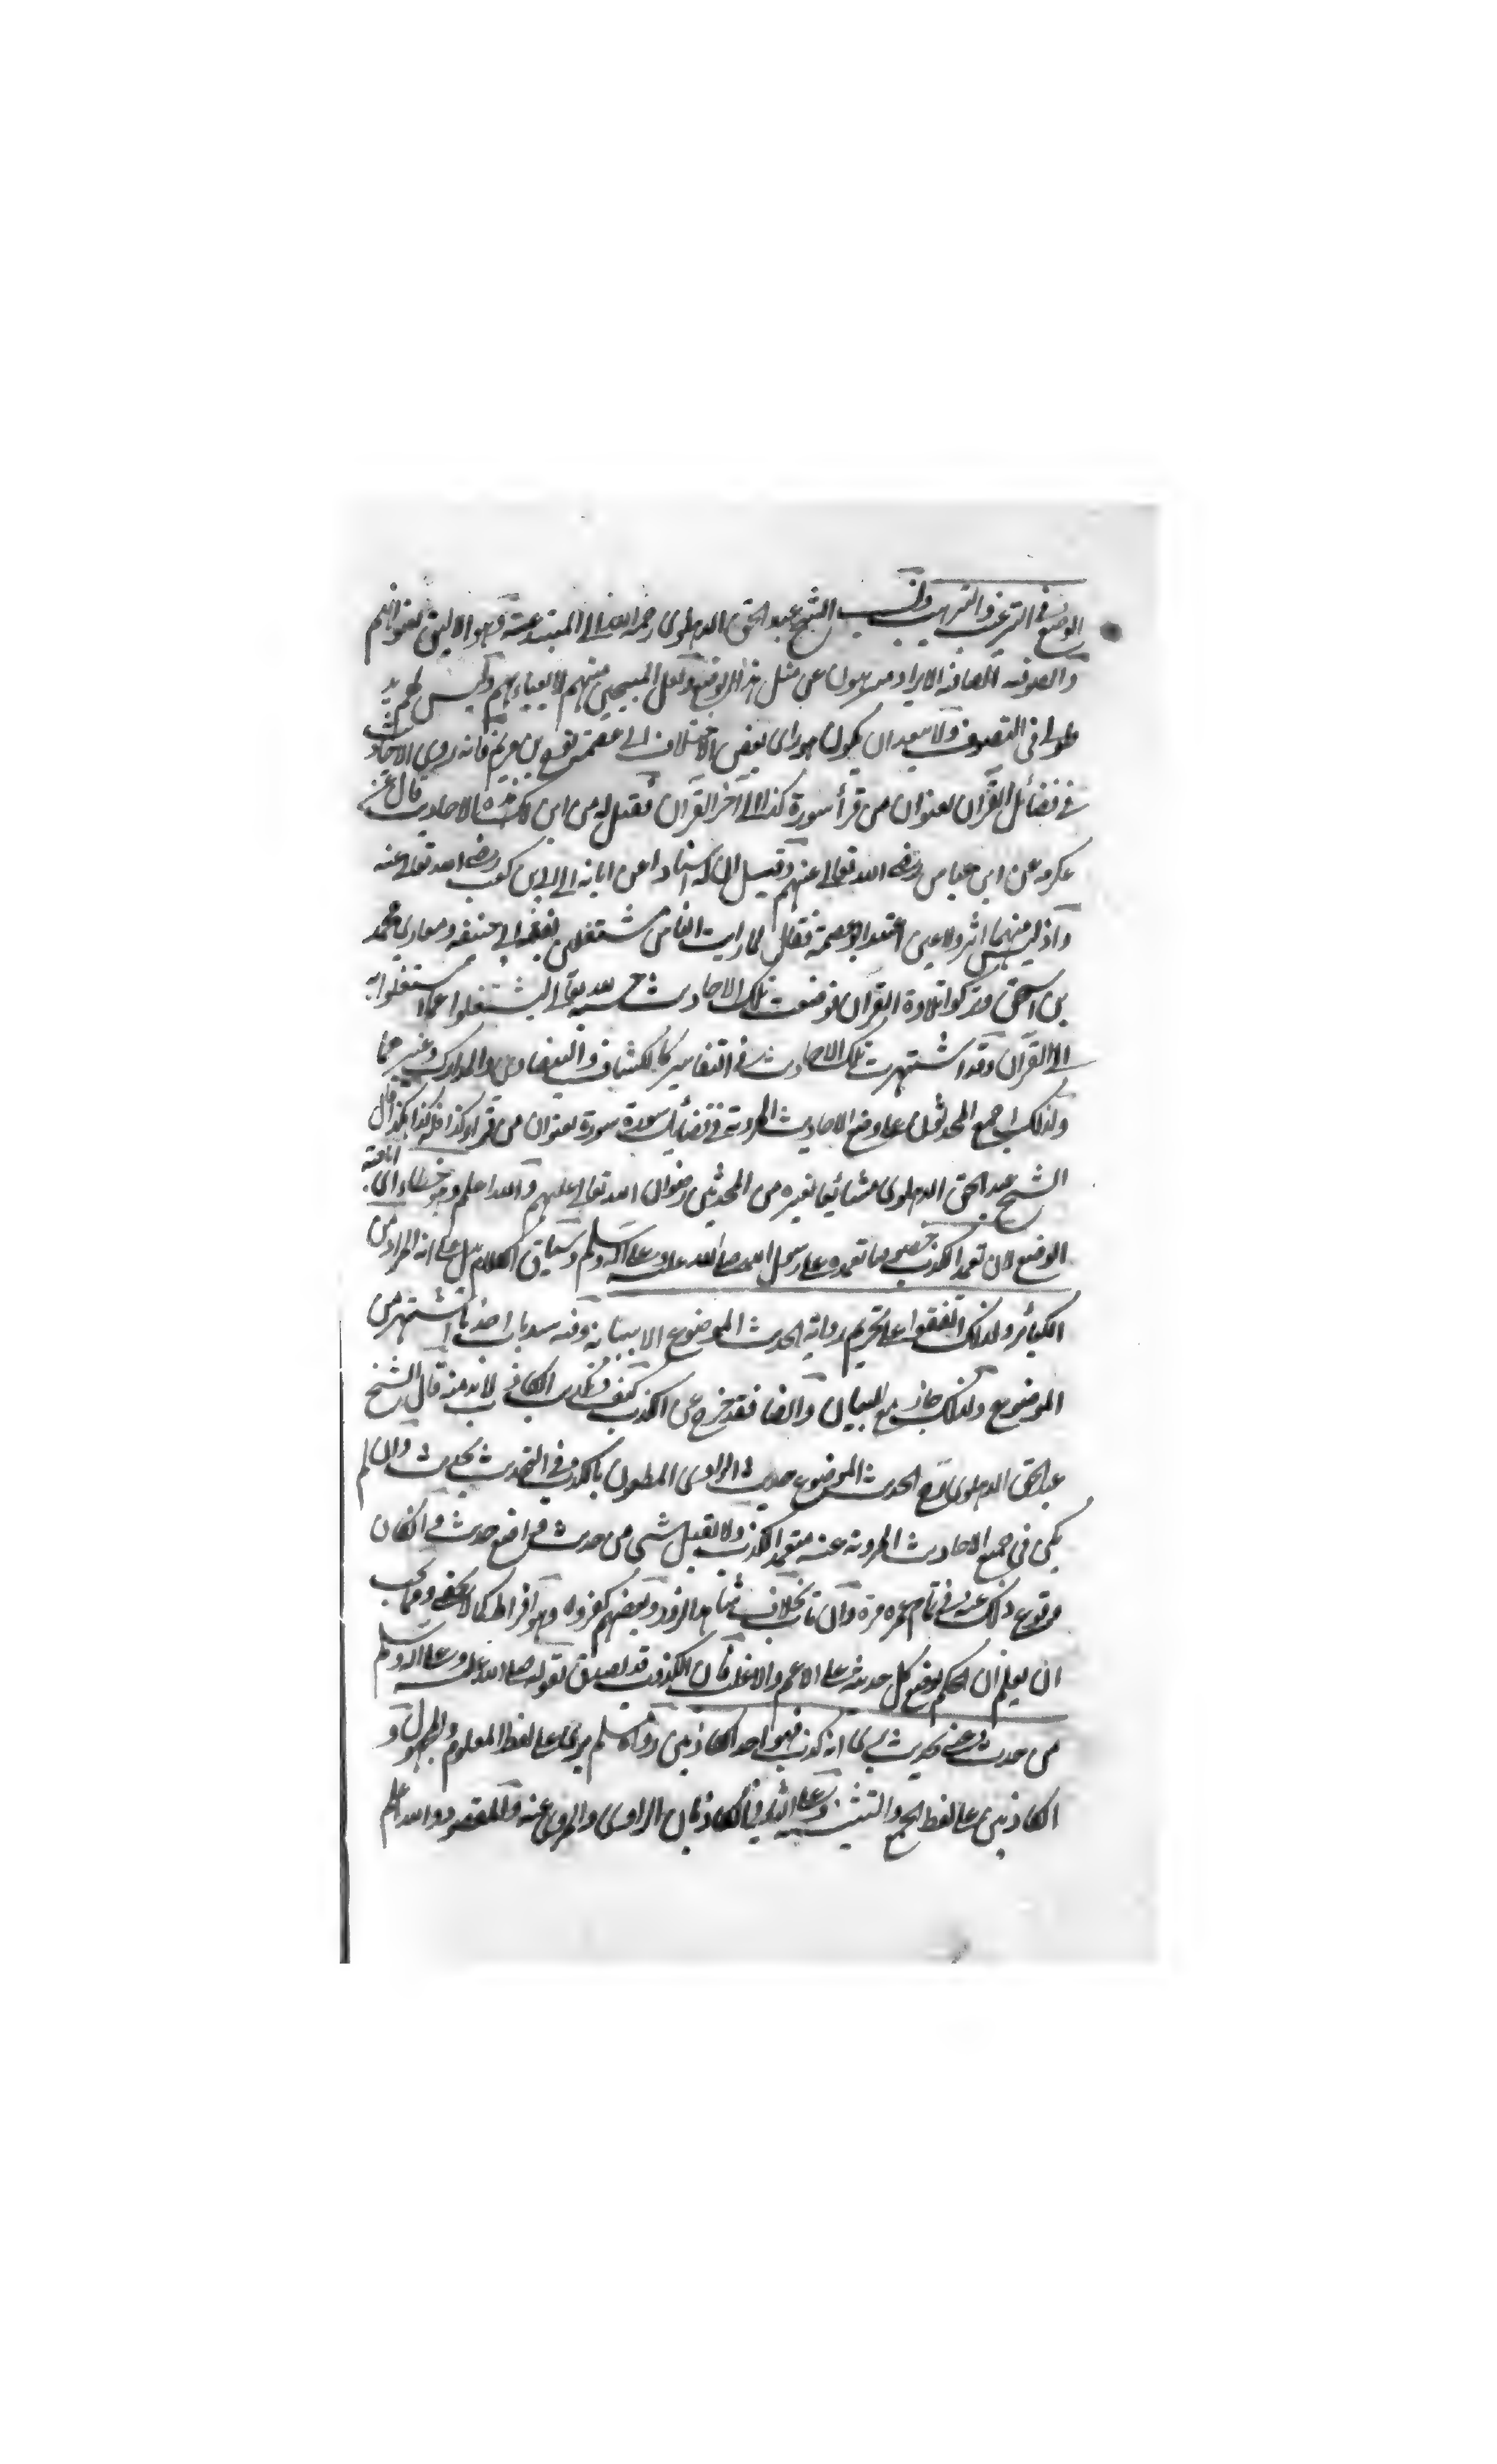 الوضع في الترغيب والترهيب ونسب الشيخ عبد الحق الدهلوي رحمه الله الى المبتدعة وهو الاليق لعقوالهم
والصوفية الصافية الابراد مبرءون عن مثل هذا الوضع ولعل المبيحين منهم لاغبيائهم وليس لهم يد
طولى في التصوف ولا يبعد ان يكون هو راى بعض الاختلاف الى عصمة نوح بن مريم فانه روى الاحاديث
في فضائل القرآن بعنوان من قرأ سورة كذا الى آخر القرآن فقيل له من اين لك هذه الاحاديث قال عن
عكرمه عن ابن عباس رضي الله تعالى عنهم وقيل ان له اسنادا عن ابانه الى ابى بن كعب رضي الله تعالى عنه
واذ ليس منهما اثر ولا عين اعتذر ابو عصمة فقال لما رايت الناس مشتغلين بفقه ابي حنيفه ومغازي محمد
بن اسحق وتركوا تلاوة القرآن فوضعت تلك الاحاديث حسبة لله تعالى ليشتغلوا عما اشتغلوا به
الى القرآن وقد اشتهرت تلك الاحاديث في التفاسير كالكشاف والبيضاوي والمدارك وغيرهما
ولذلك اجمع المحدثون على وضع الاحاديث المروية في فضائل سورة سورة بعنوان من قرأ كذا فله كذا هكذا قال
الشيخ عبد الحق الدهلوي متابعا لغيره من المحدثين رضوان الله تعالى عليهم والله اعلم وهو خطاء اى اباحة
الوضع لان تعمد الكذب خصوصا تعمده على رسول الله صلى الله عليه وعلى آله وسلم وسياق الكلام يدل على انه المراد من
الكبائر ولذلك اتفقوا على تحريم رواية الحديث الموضوع الا ببيانه وفيه سد باب اخذ ما اشتهر من
الموضوع ولذلك جاز مع البيان وايضا فقد خرج عن الكذب كيف وتكذيب الكاذب لا بد منه قال الشيخ
عبد الحق الدهلوي رح الحديث الموضوع حديث الراوي المطعون بالكذب في التحديث بحديث وان لم
يكن في جميع الاحاديث المروية عنه متعمد الكذب ولا تقبل شيء من حديث من اضع حديث في الكان
وقوع ذلك عنه في تمام عمره مرة وان تاب بخلاف شاهد الزور وبعضهم كفروه وهو افراط كما لا يخفى ومما يجب
ان يعلم ان الحكم بوضع كل حديث على الاعم والاغلب فان الكذوب قد يصدق لقوله صلى الله عليه وعلى اله وسلم
من حدث عني بحديث يرى انه كذب فهو احد الكاذبين رواه مسلم يرى على لفظ المعلوم والمجهول و
الكاذبين على لفظ الجمع والتثنية وعلى الثاني فالكاذبان الراوي والمروي عنه والمقصود والله اعلم